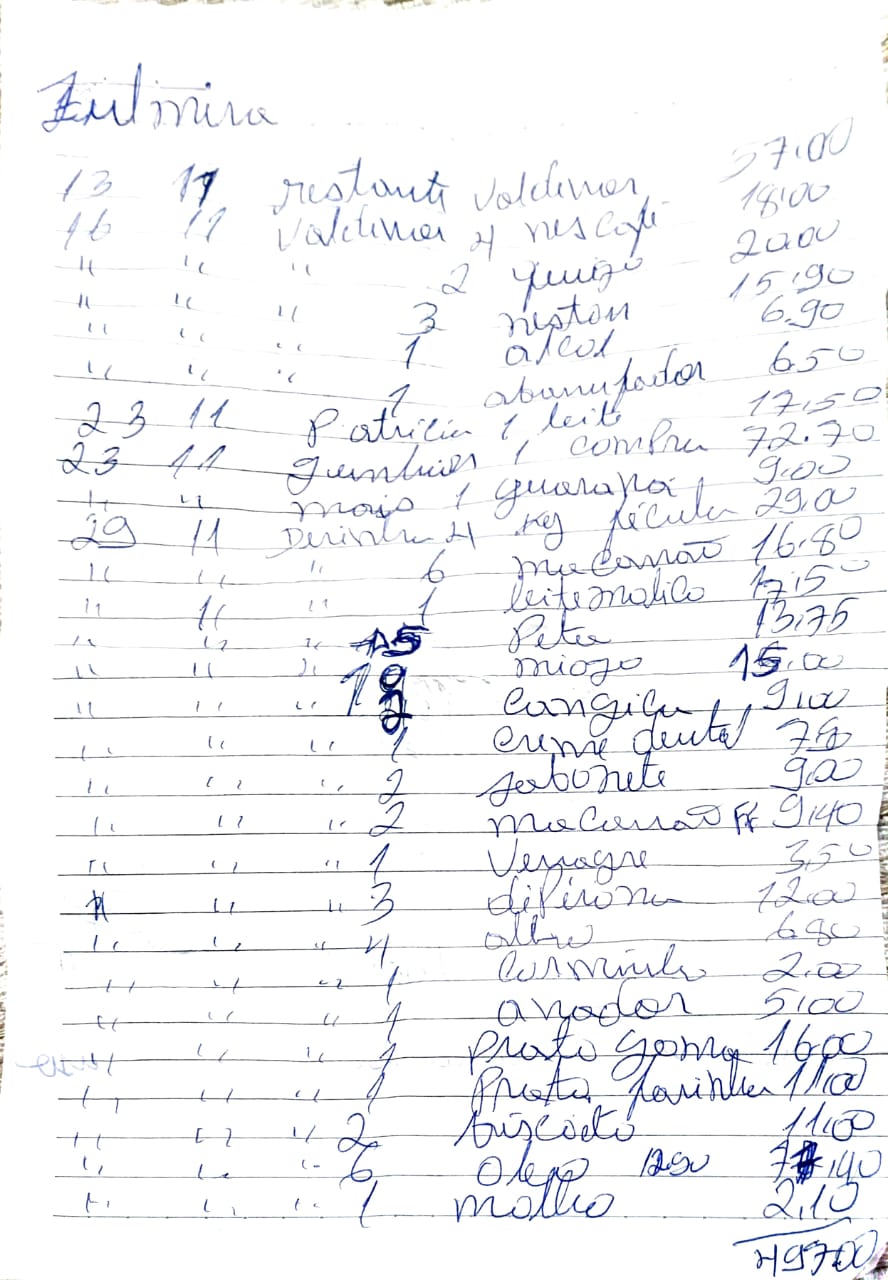 Zulmira
13 11 restante Valdimar 37.00
16 11 Valdimar 4 nescafé 18.00
" " " 2 20.00
" " " 3 neston 15.90
" " " 1 alcol 6.90
" " " 1 6.50
23 11 Patricia 1 leite 17,50
23 11 1 compra 72.70
" " mais 1 guarana 9.00
29 11 4 kg fécula 29,00
" " " 6 macarrão 16.80
" " " 1 leite 17,50
" " " 15 Peta 13,75
" " " miojo 15.00
" " " 2 cangica 9,00
" " " 1 creme dental
" " " 2 sabonete 9,00
" " " 2 macarrão 9,40
" " " 1 Venagre 3,50
" " " 3 dipirona 12.00
" " " 4 6.80
" " " 1 2.00
" " " 1 anador 5,00
" " " 1 prato goma 16,00
" " " 1 Prato farinha 11,00
" " " 2 biscoito 11,00
" " " 6 oleo 12,90 ,40
" " " 1 molho 2,10
497,00